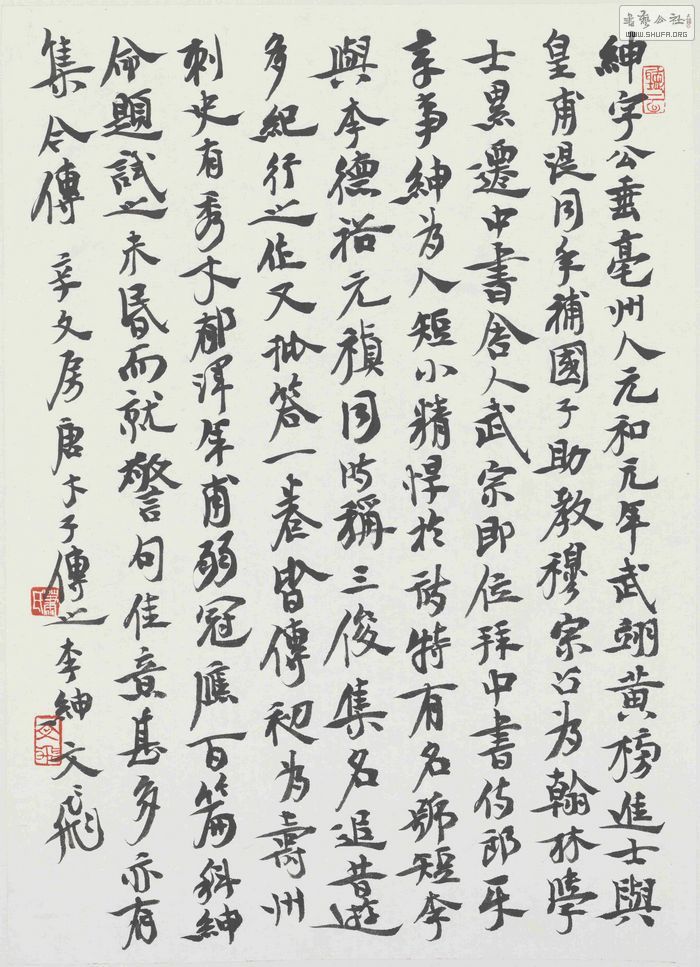 紳字公垂亳州人元和元年武翊黄榜進士與
皇甫湜同年補國子助教穆宗召為翰林學
士累遷中書舍人武宗即位拜中書侍郎平
章事紳為人短小精悍於詩特有名號短李
與李德裕元稹同時稱三俊集名追昔遊
多紀行之作又批答一卷皆傳初為壽州
刺史有秀才郁渾年甫弱冠應百篇科紳
命題試之未昏而就警句佳意甚多亦有
集今傳 辛文房唐才子傳之李紳 文飛
書藝公社
WWW.SHUFA.ORG